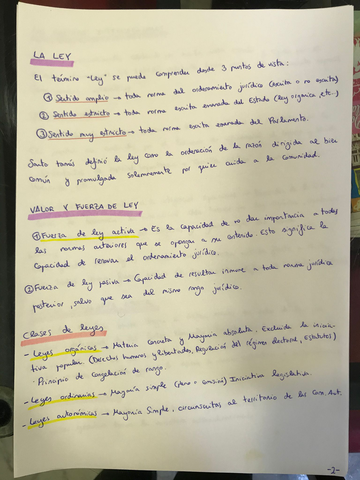 LA LEY
El término "Ley" se puede comprender desde 3 puntos de vista:
① Sentido amplio → toda norma del ordenamiento jurídico (escrita o no escrita)
② Sentido estricto → toda norma escrita emanada del Estado (Ley orgánica, etc..)
③ Sentido muy estricto → toda norma escrita emanada del Parlamento.
Santo Tomás definió la ley como la ordenación de la razón dirigida al bien
común y promulgada solemnemente por quien cuida a la Comunidad.
VALOR Y FUERZA DE LEY
① Fuerza de ley activa → Es la capacidad de no dar importancia a todas
las normas anteriores que se opongan a su contenido. Esto significa la
capacidad de renovar el ordenamiento jurídico.
② Fuerza de ley pasiva → Capacidad de resultar inmune a toda norma jurídica
posterior, salvo que sea del mismo rango jurídico.
Clases de leyes
- Leyes orgánicas → Materia concreta y Mayoría absoluta. Excluida la inicia-
tiva popular (Derechos humanos y libertades, Regulación del régimen electoral, Estatutos)
- Principio de Congelación de rango.
- Leyes ordinarias → Mayoría simple (Pleno + Comisión) Iniciativa legislativa.
- Leyes autonómicas → Mayoría Simple, circunscritas al territorio de las Com. Aut.
-2-